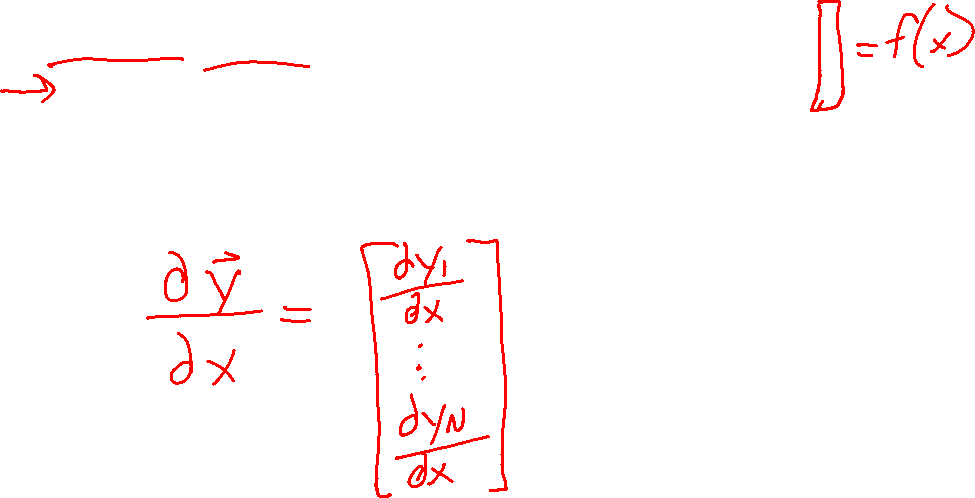 = f(x)
∂y⃗/∂x = [∂y₁/∂x ⋮ ∂y_N/∂x]